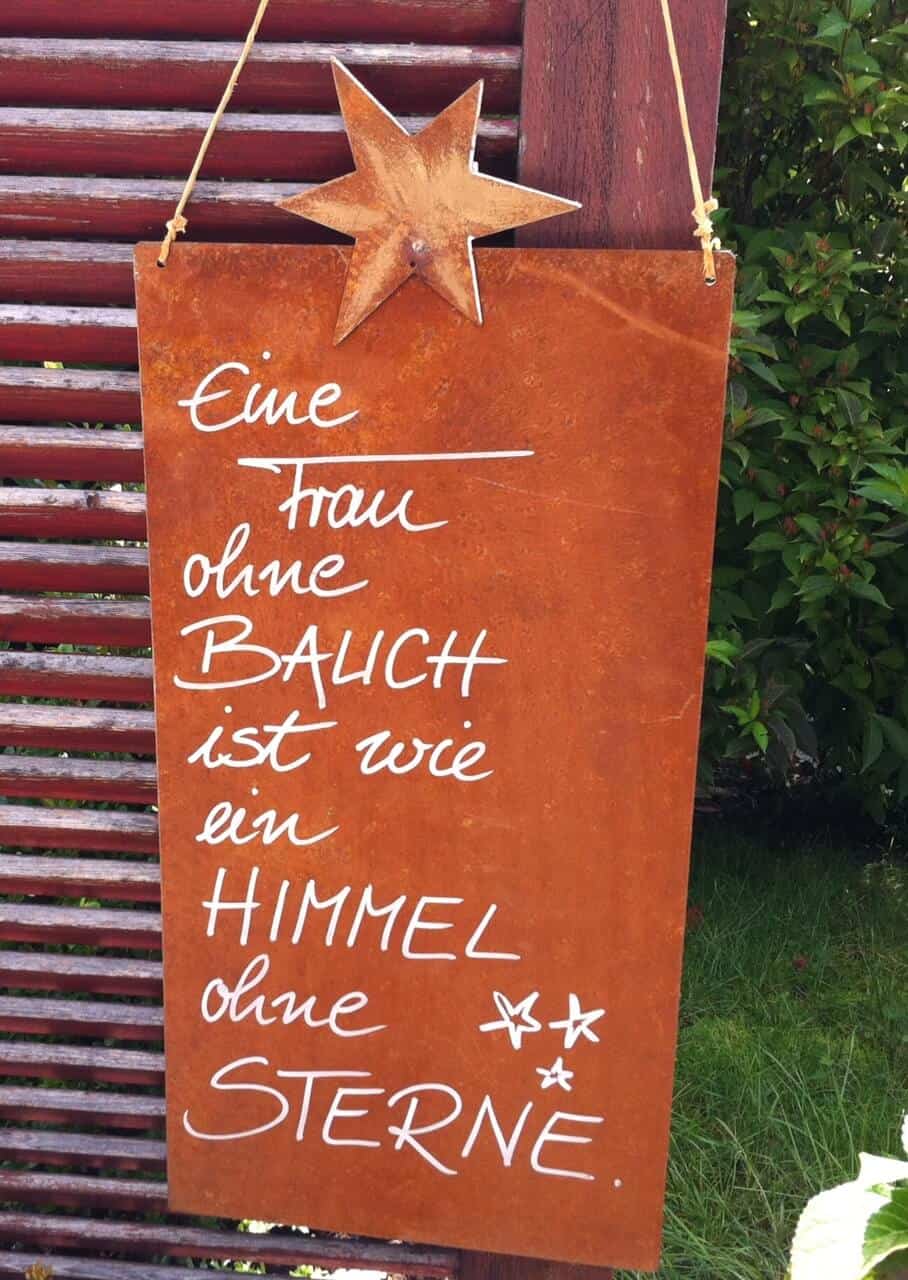 Eine
Frau
ohne
BAUCH
ist wie
ein
HIMMEL
ohne
STERNE.